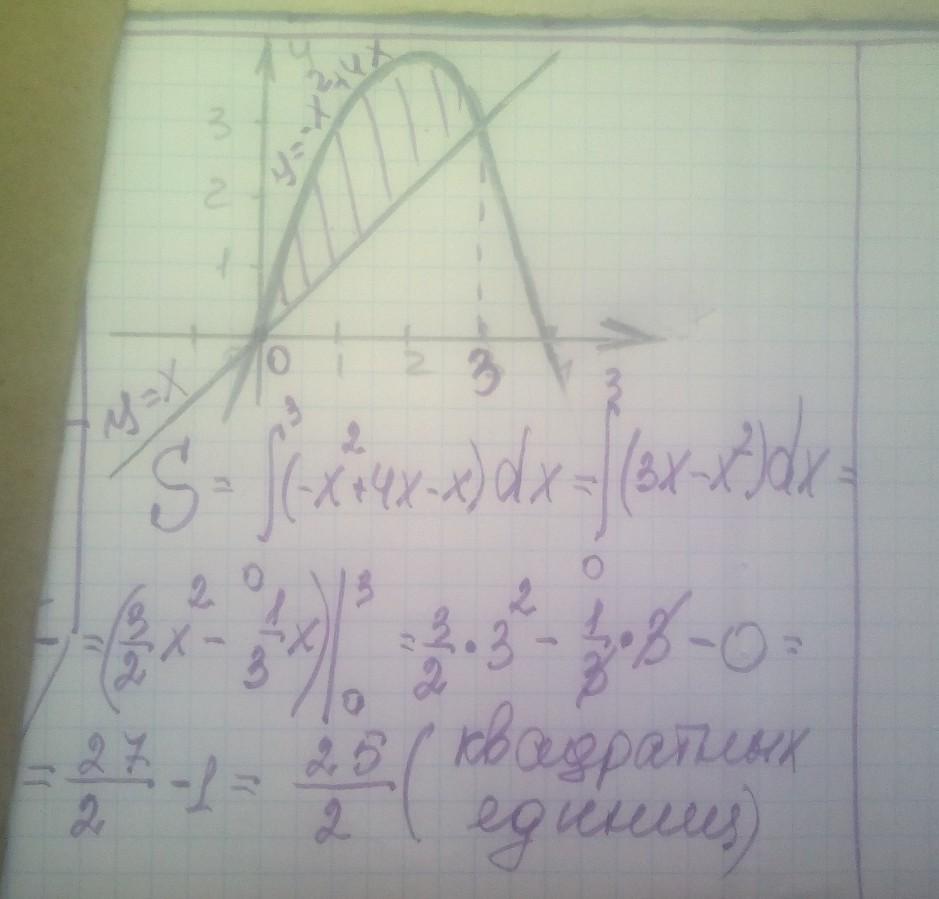 y
y=-x²+4x
3
2
1
0 1 2 3
y=x
S = ∫₀³(-x²+4x-x)dx = ∫₀³(3x-x²)dx =
= (3/2 x² - 1/3 x)|₀³ = 3/2 · 3² - 1/3 · 3 - 0 =
= 27/2 - 1 = 25/2 (квадратных
единиц)